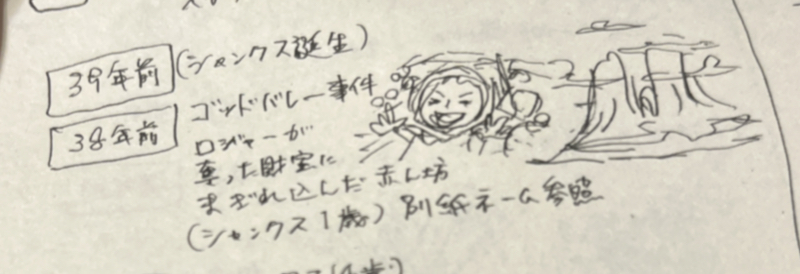 39年前
(シャンクス誕生)
38年前
ゴッドバレー事件
ロジャーが
奪った財宝に
まぎれ込んだ赤ん坊
(シャンクス1歳) 別紙ネーム参照